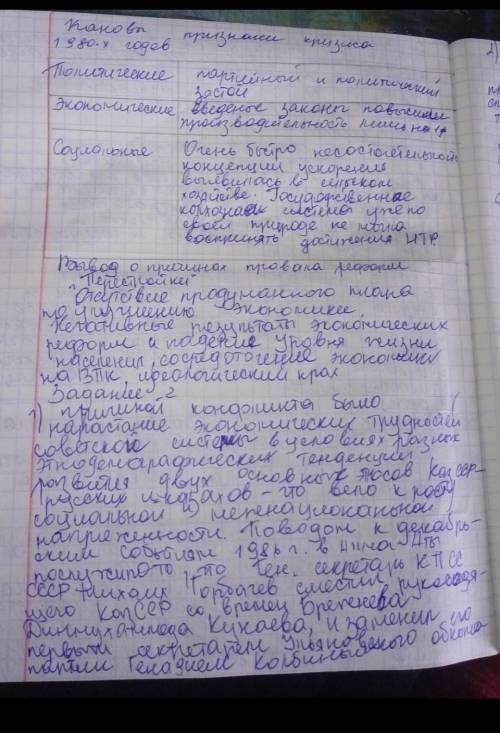 Каковы признаки кризиса
1980-х годов
Политические партийный и политический
застой
Экономические введеные законы повысили
производительность лишь на
Социальные Очень быстро несостоятельность
концепции ускорения
выявилась в сельском
хозяйстве. Государственная
колхозная система уже по
своей природе не могла
воспринять достижения НТР
Вывод о причинах провала реформ
"Перестройки"
Отсутствие продуманного плана
по улучшению экономики.
Негативные результаты экономических
реформ и падение уровня жизни
населения, сосредоточение экономики
на ВПК, идеологический крах
Задание 2
1) причиной конфликта было
нарастание экономических трудностей
советской системы в условиях разных
этнодемографических тенденций
развития двух основных этносов КазССР-
русских и казахов - что вело к росту
социальной и межнациональной
напряженности. Поводом к декабрь-
ским событиям 1986 г. в Алма-Аты
послужило то что Ген. секретарь КПСС
СССР Михаил Горбачев сместил руководя-
щего КазССР со времен Брежнева
Динмухамеда Кунаева, и заменил его
первым секретарем Ульяновского обкома
партии Генадием Колбиным